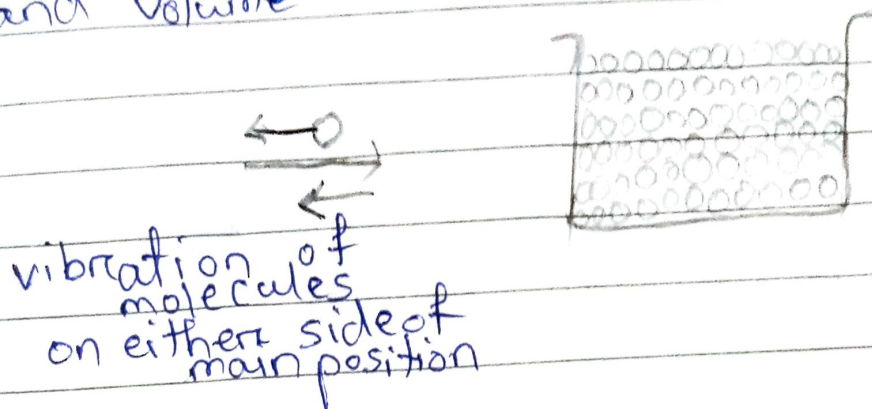 and volume
vibration of
molecules
on either side of
main position